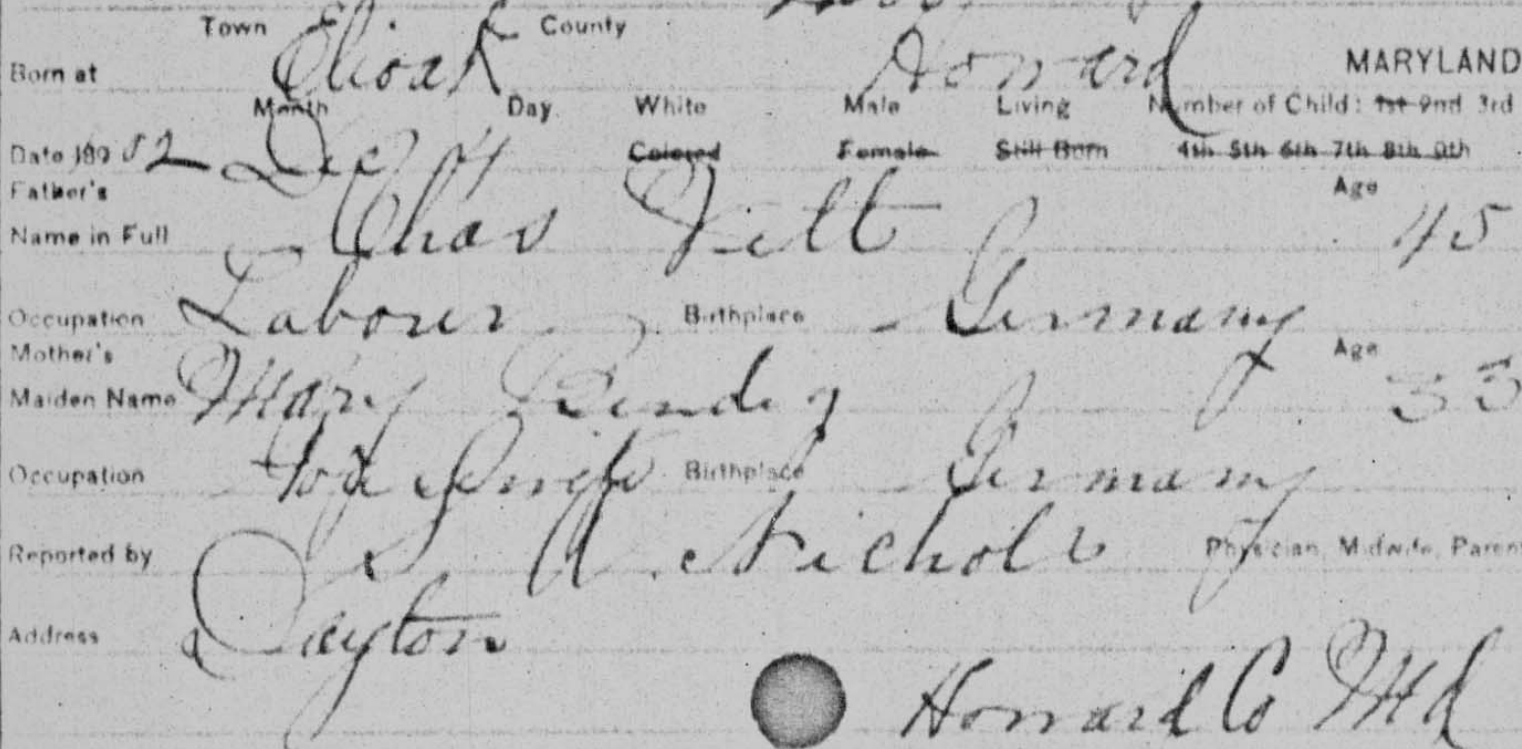 Town County
Born at Elioak Howard MARYLAND
Month Day White Male Living Number of Child: 1st 2nd 3rd
Date 189 02 Dec 4 Colored Female Still Born 4th 5th 6th 7th 8th 9th
Father's Age
Name in Full Chas 45
Occupation Labourer Birthplace Germany
Mother's Age
Maiden Name Mary 33
Occupation Birthplace Germany
Reported by Nichols Physician, Midwife, Parent
Address Dayton
Howard Co Md